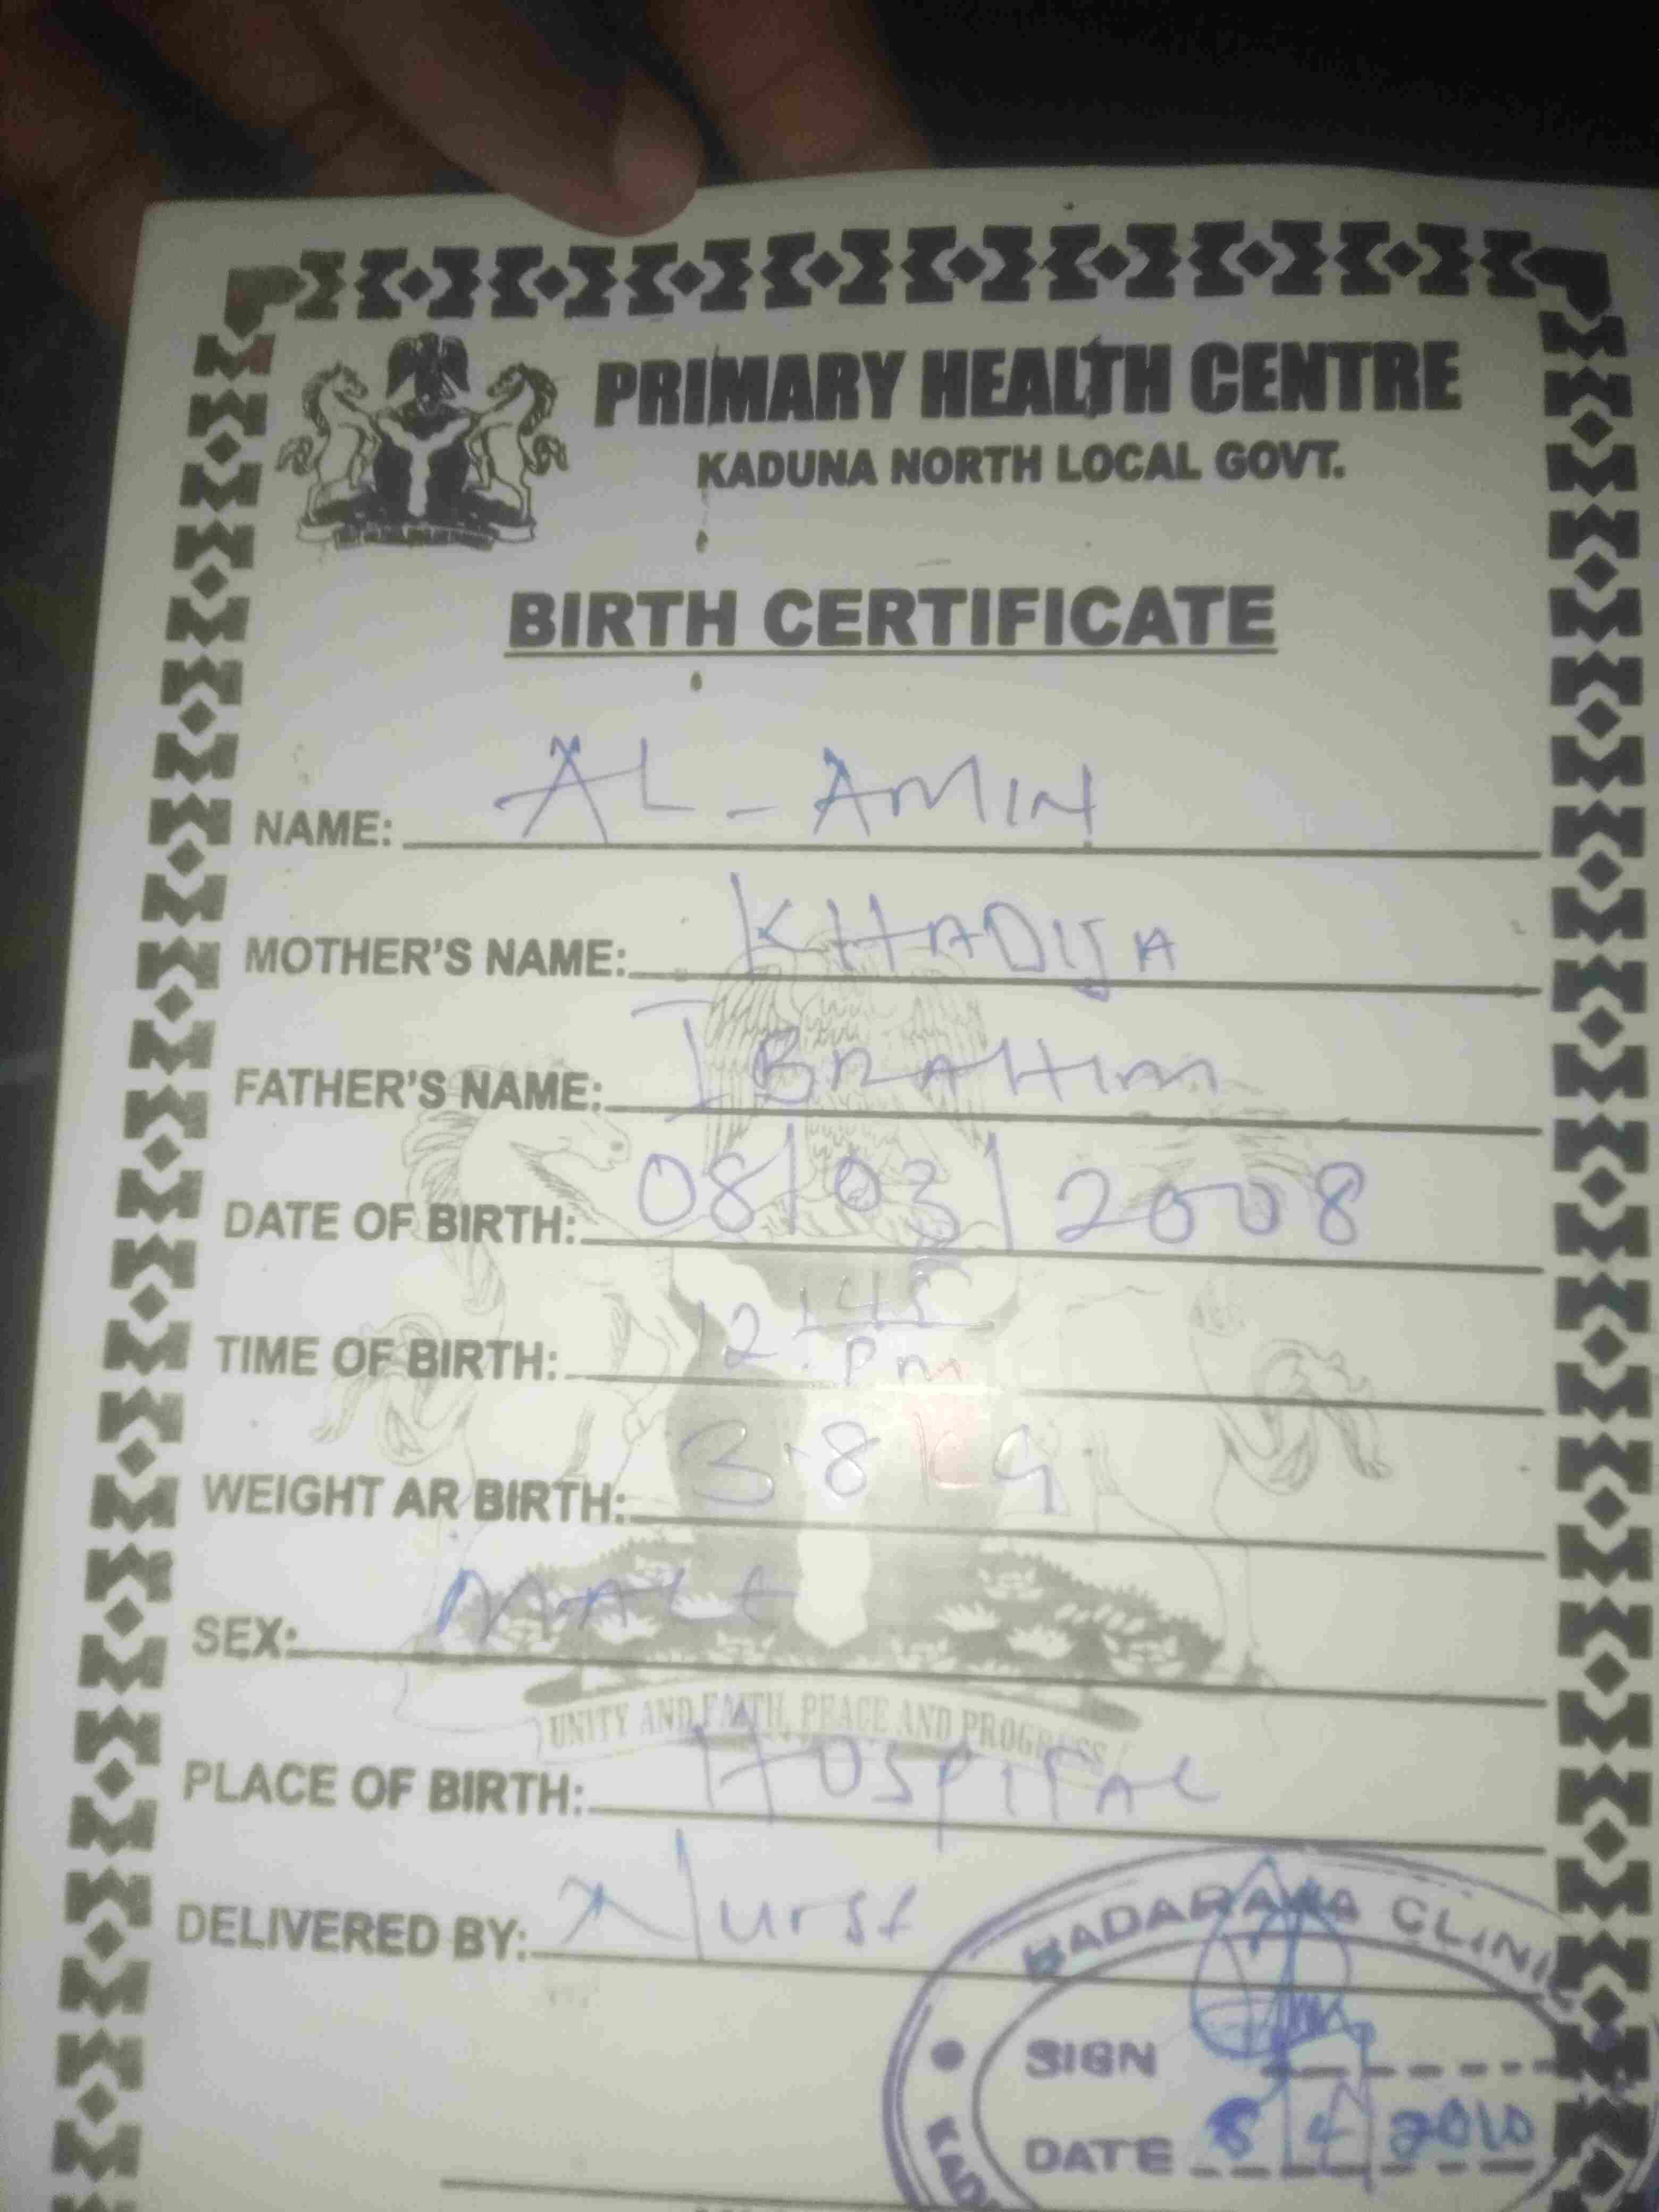 PRIMARY HEALTH CENTRE
KADUNA NORTH LOCAL GOVT.
BIRTH CERTIFICATE
NAME: AL-AMIN
MOTHER'S NAME: KHADIJA
FATHER'S NAME: IBRAHIM
DATE OF BIRTH: 08/03/2008
TIME OF BIRTH: 12:45 pm
WEIGHT AR BIRTH: 3.8 kg
SEX: MALE
UNITY AND FAITH, PEACE AND PROGRESS
PLACE OF BIRTH: HOSPITAL
DELIVERED BY: Nurse
BADARAWA CLINIC
SIGN
DATE 8/4/2010